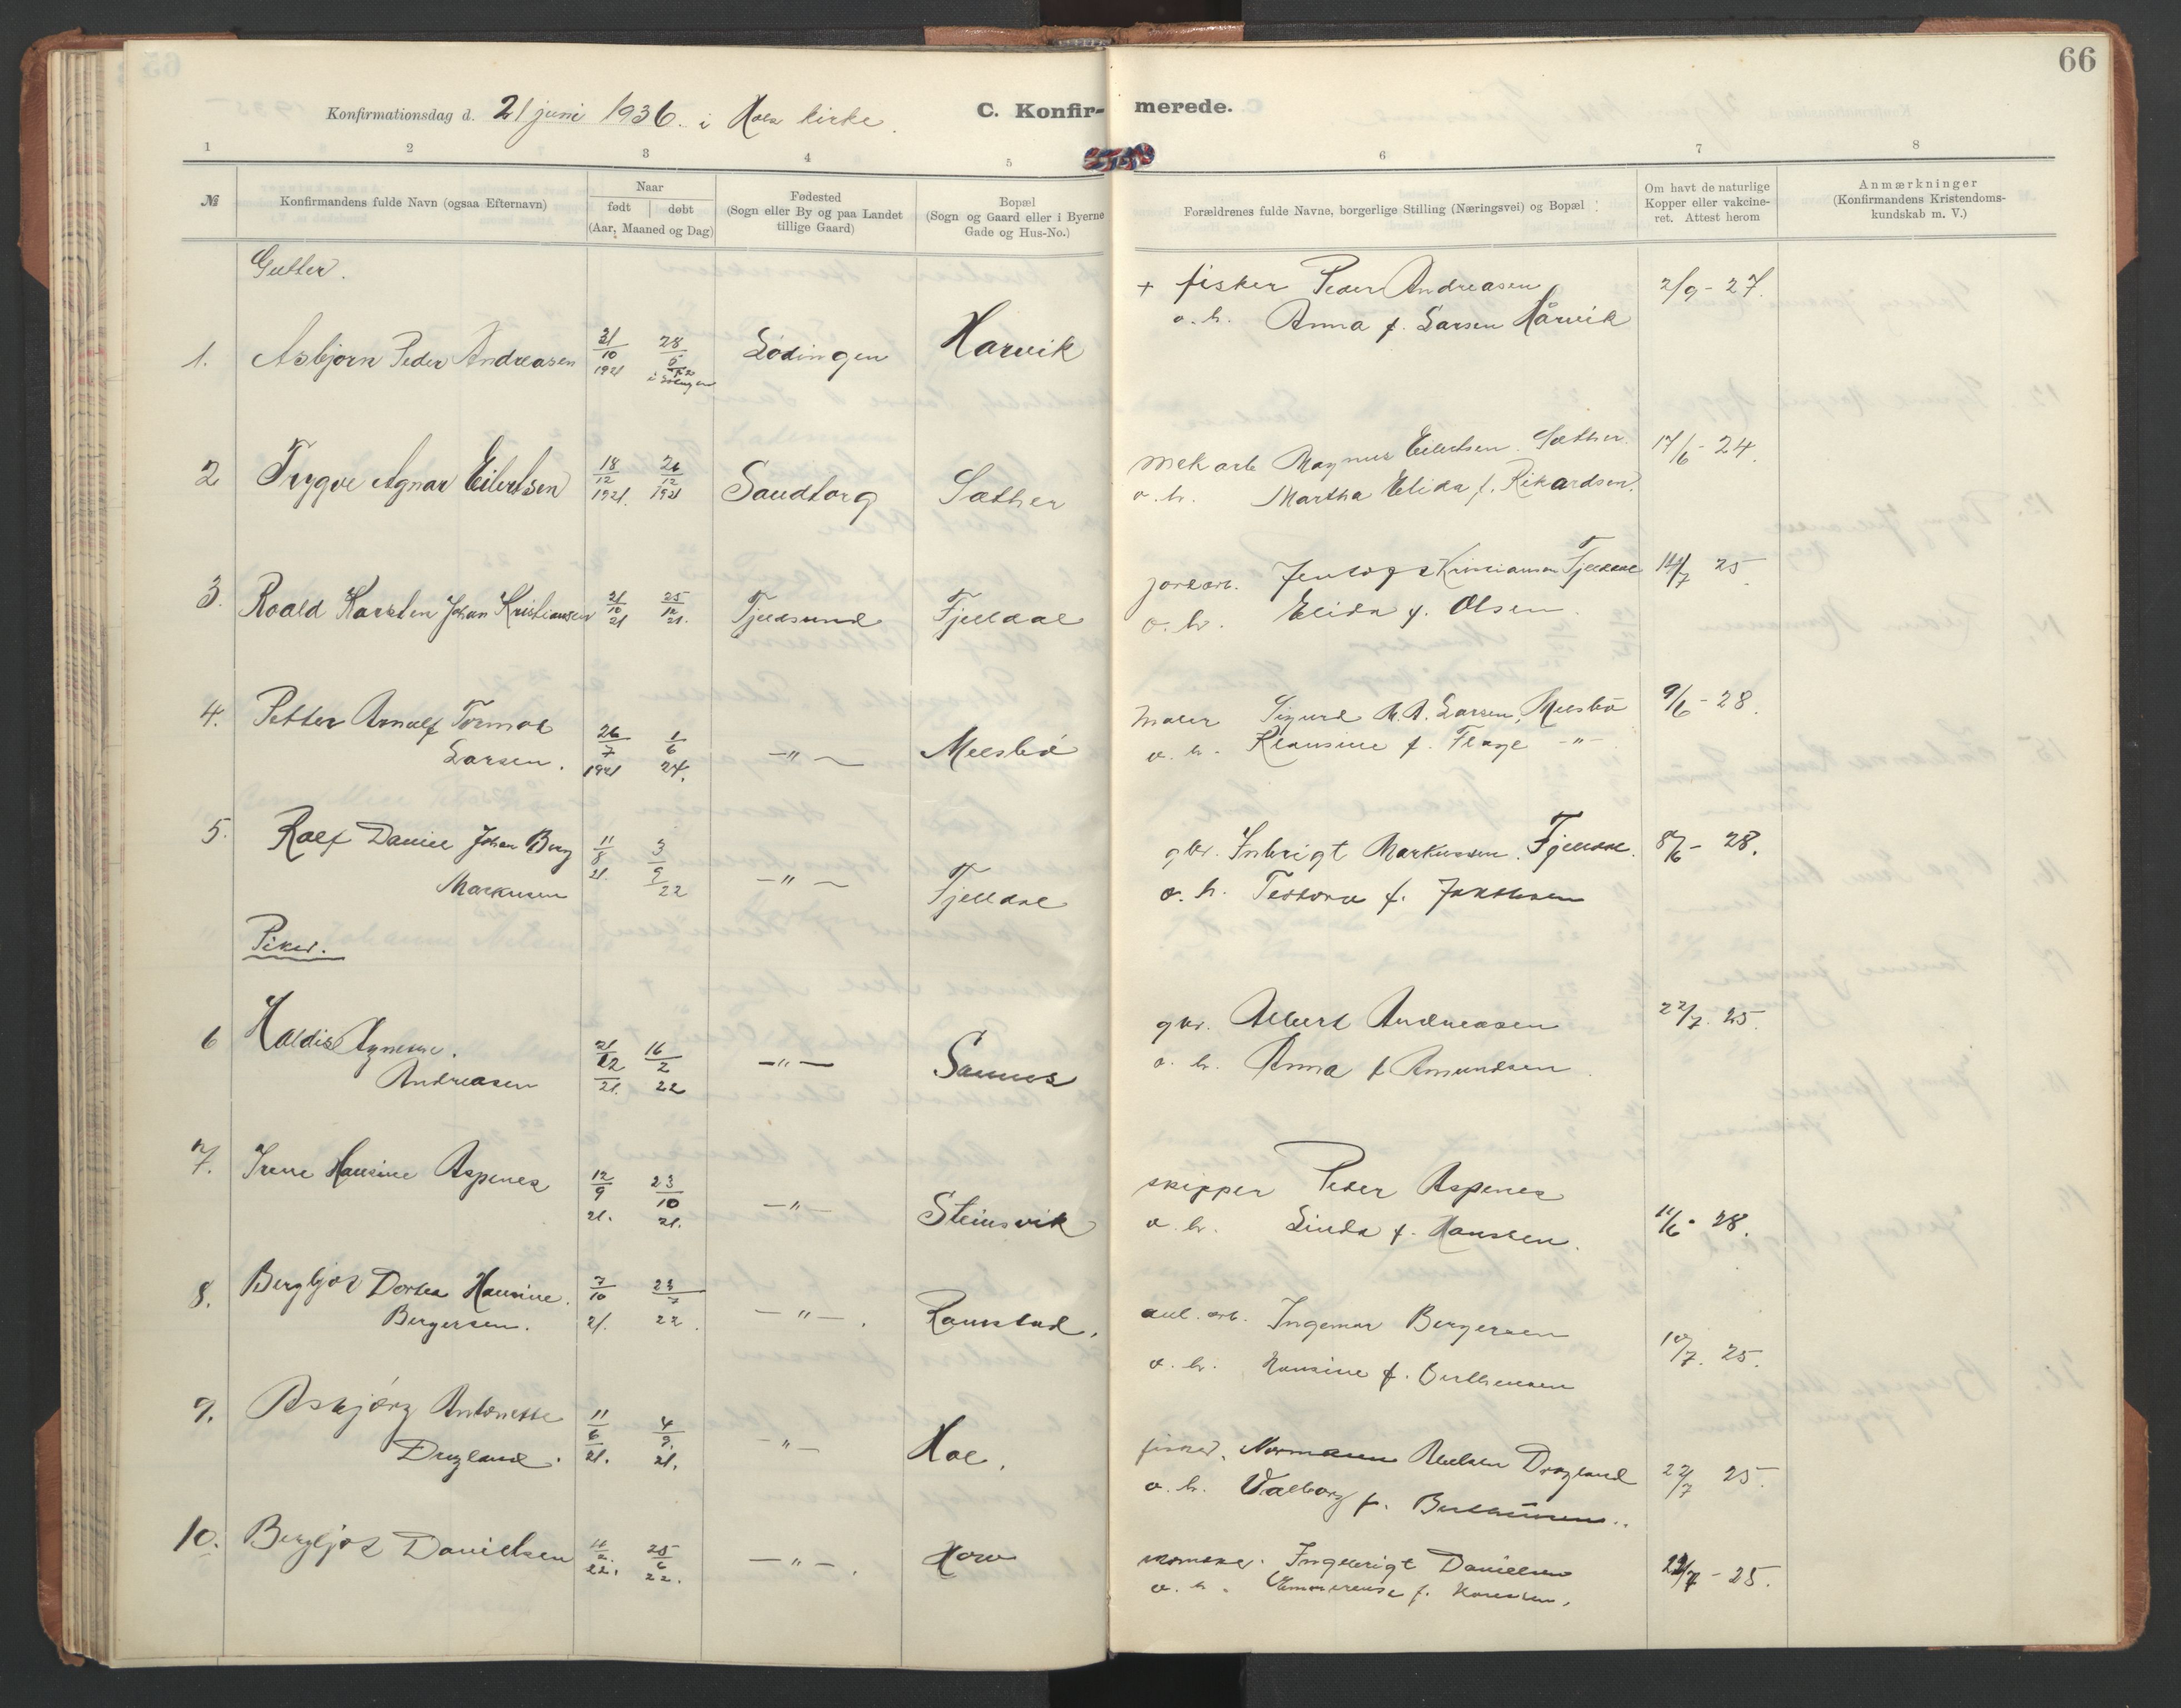 66
Konfirmationsdag d. 21 juni 1936. i Hols kirke.
C. Konfir- merede.
1 2 3 4 5 6 7 8
№
Konfirmandens fulde Navn (ogsaa Efternavn)
Naar
født døbt
(Aar, Maaned og Dag)
Fødested
(Sogn eller By og paa Landet
tillige Gaard)
Bopæl
(Sogn og Gaard eller i Byerne
Gade og Hus-No.)
Forældrenes fulde Navne, borgerlige Stilling (Næringsvei) og Bopæl
Om havt de naturlige
Kopper eller vakcine-
ret. Attest herom
Anmærkninger
(Konfirmandens Kristendoms-
kundskab m. V.)
Gutter.
+ fisker Peder Andreasen 2/9 - 27.
o. h. Anna f. Larsen Hårvik
1. Asbjørn Peder Andreasen 21/10 1921 28/5 Lødingen Harvik
2 Trygve Agnar Eilertsen 18/12 1921. 26/12 1921 Sandtorg Sæther
mek arb Magnus Eilertsen. Sæther. 17/6 - 24.
o. h. Martha Elida f. Rikardsen.
3. Roald Karsten Johan Kristiansen 21/10 21 25/12 21. Tjeldsund Fjelldal
jordarb. Kristiansen Fjelldal 14/7 25
o. h. Elida f. Olsen.
4. Petter Arnulf Tormod
Larsen. 26/7 1921 1/6 24. -"- Melsbø
maler Sigurd M. A. Larsen, Melsbø 9/6 - 28.
o. h. Klausine f. Flage -"-
5. Rolf Daniel Johan Berg
Markusen 11/8 21. 3/9 22 -"- Fjelldal
gbr. Inbrigt Markussen. Fjelldal. 8/6 - 28.
o. h. Teodora f. Jakobsen
Piker.
6 Haldis Agnesse.
Andreasen 21/12 21. 16/2 22 -"- Sannes
gbr. Albert Andreasen 22/7. 25.
o. h. Anna f Amundsen.
7. Irene Hansine Aspenes 12/9 21. 23/10 21. -"- Steinsvik
skipper Peder Aspenes
o. h. Linda f. Hansen. 11/6 - 28.
8. Bergljot Dortea Hansine.
Bergersen. 7/10 21. 23/7 22. -"-. Ramstad.
anl. arb. Ingemar Bergersen
o. h. Hansine f. 10/7. 25.
9. Asbjørg Antonette
Drageland. 11/6 21. 4/9. 21. -"- Hol.
fisker. Normann Drageland 22/7 25.
o. h. Valborg f.
10. Bergljot Danielsen 11/2. 22. 25/6 22. -"-. Hol
skomaker. Ingebrigt Danielsen 22/7 - 25.
o. h. Emmerense f. Karelsen.